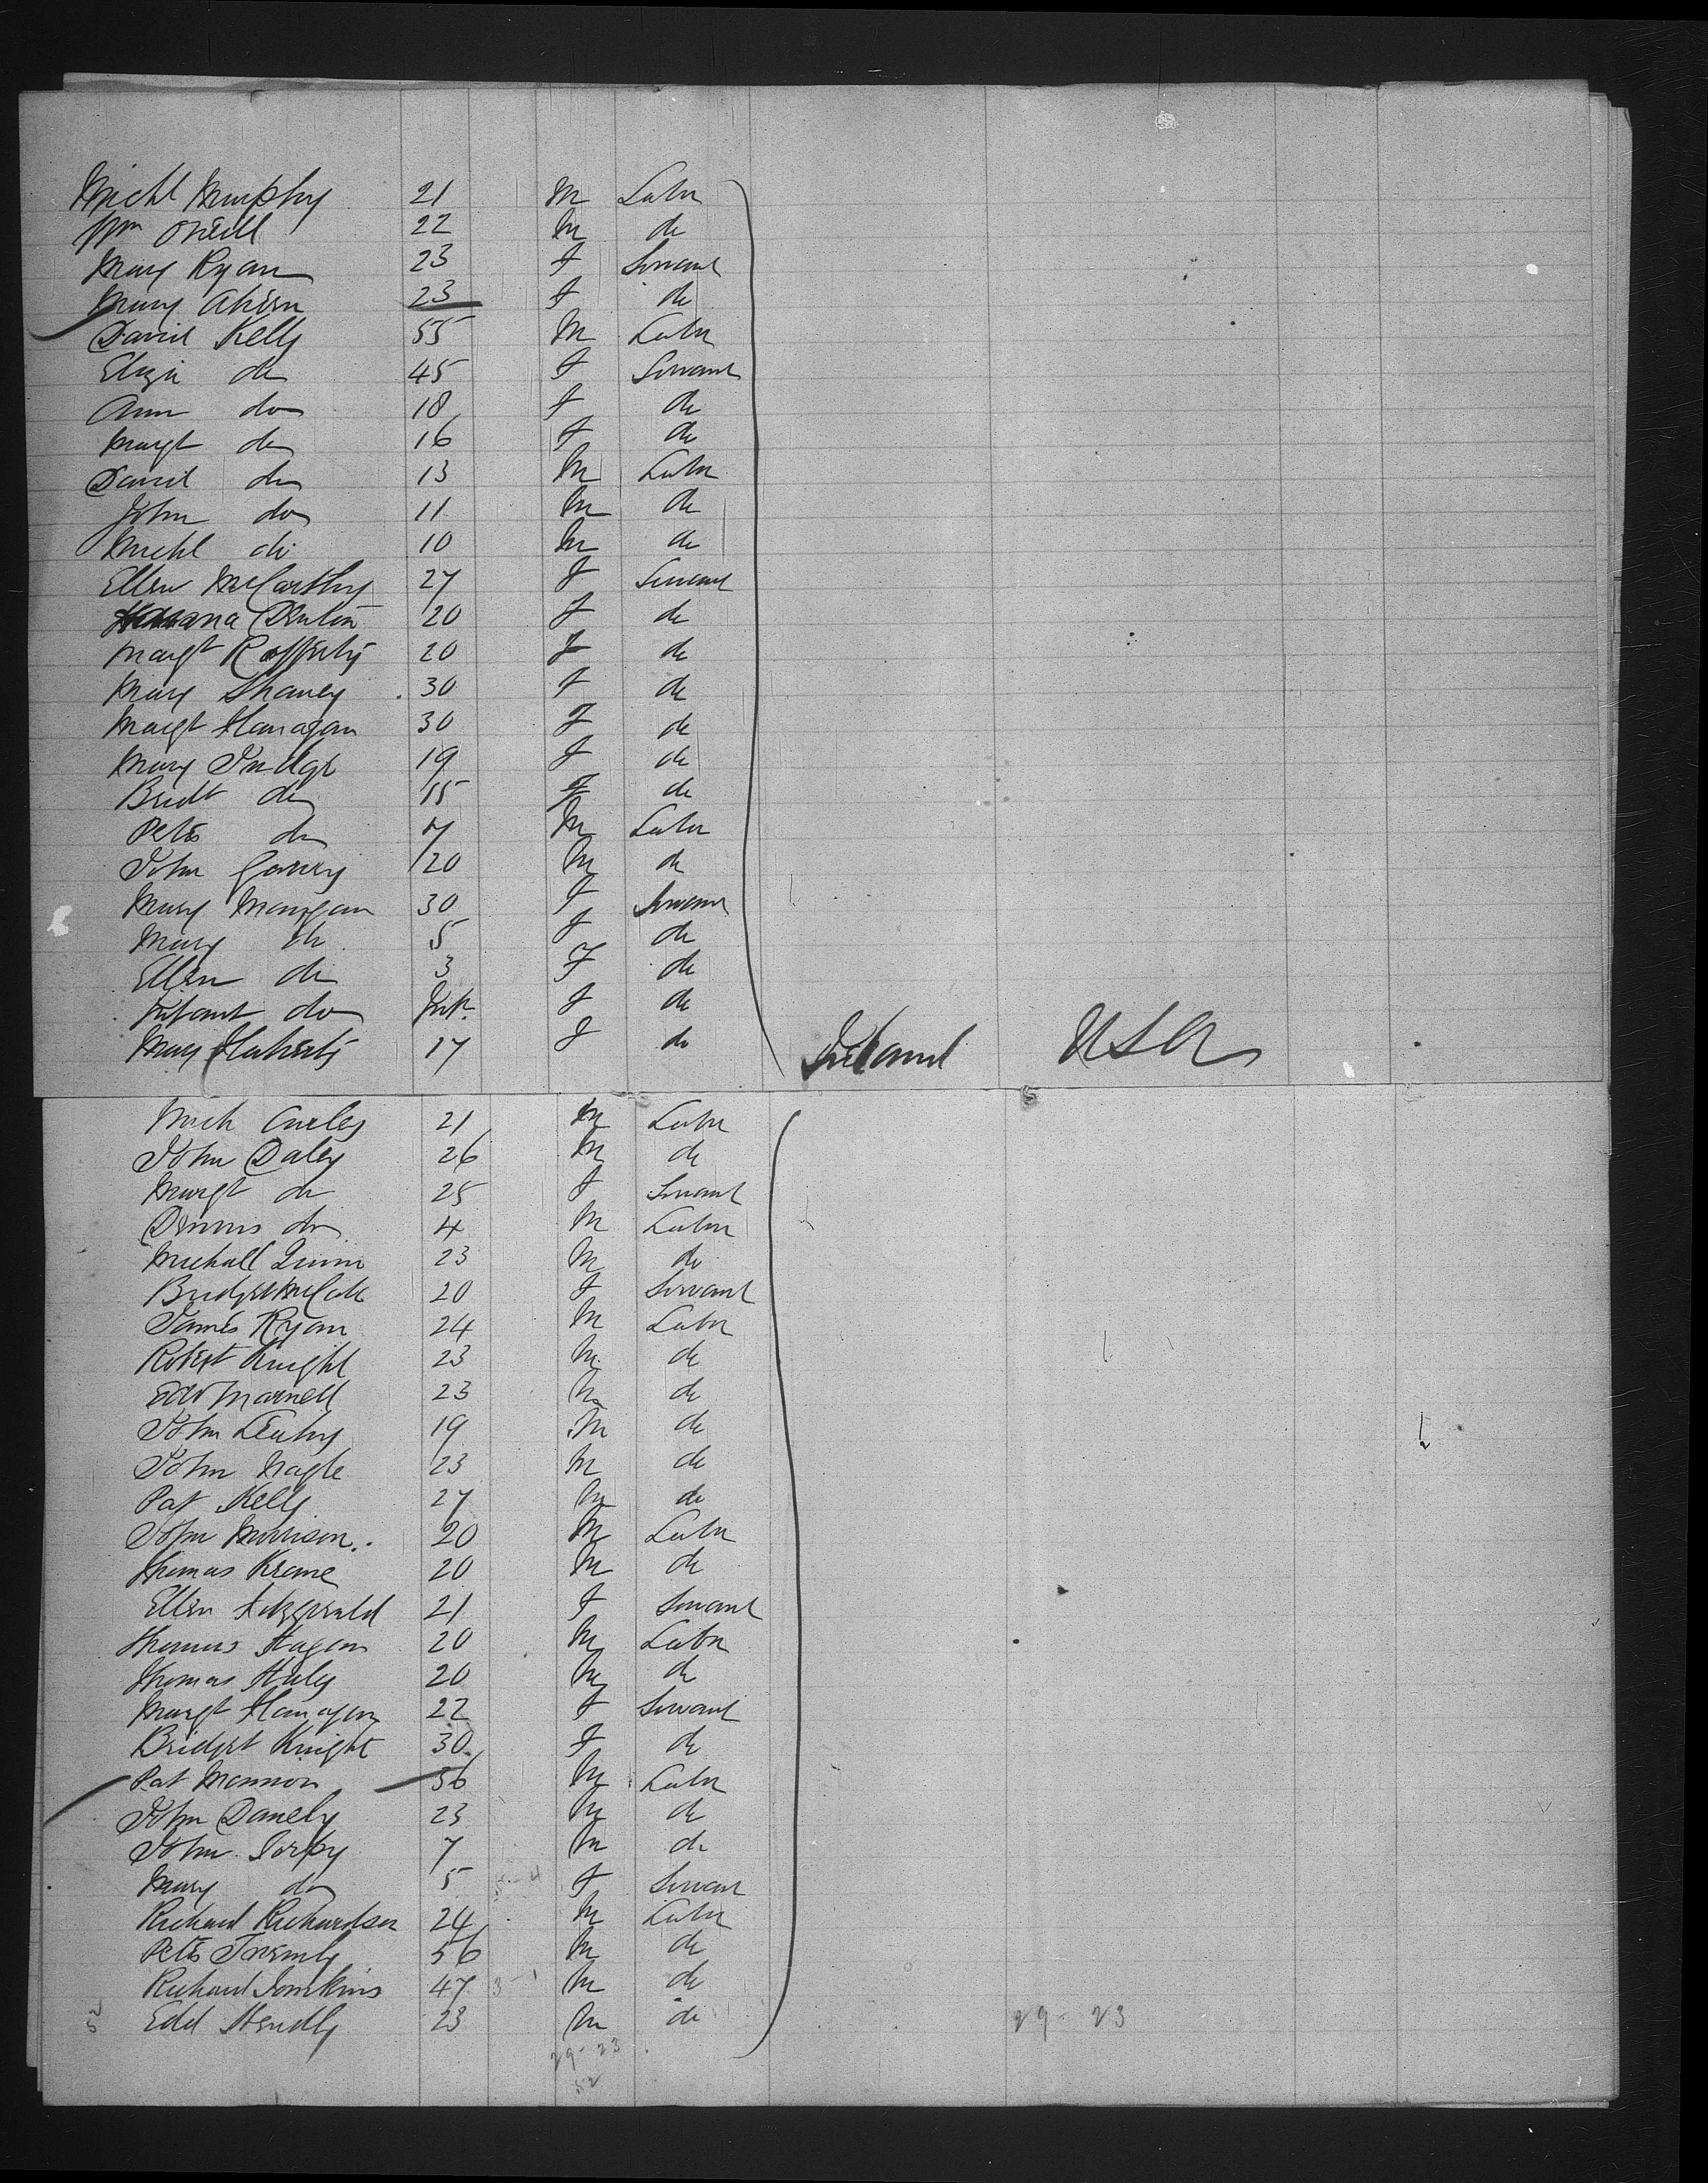 Michl Murphy 21 M Labr
Wm ONeill 22 M do
Mary Ryan 23 F Servant
Mary Ahern 23 F do
David Kelly 55 M Labr
Eliza do 45 F Servant
Ann do 18 F do
Margt do 16 F do
David do 13 M Labr
John do 11 M do
Michl do 10 M do
Ellen McCarthy 27 F Servant
20 F do
Margt Rafferty 20 F do
Mary 30 F do
Margt Flanagan 30 F do
Mary Judge 19 F do
Bridt do 15 F do
Peter do 7 M Labr
John Garvey 20 M do
Mary Mangan 30 F Servant
Mary do 5 F do
Ellen do 3 F do
Infant do Inft. F do
Mary Flaherty 17 F do Ireland USA
Mich Curley 21 M Labr
John Daley 26 M do
Margt do 25 F Servant
Dennis do 4 M Labr
Michall Quinn 23 M do
Bridget 20 F Servant
James Ryan 24 M Labr
Robert Knight 23 M do
Edw Marnell 23 M do
John Leahy 19 M do
John Nagle 23 M do
Pat Kelly 27 M do
John Morrison 20 M Labr
Thomas Keane 20 M do
Ellen Fitzgerald 21 F Servant
Thomas Hagan 20 M Labr
Thomas Haley 20 M do
Margt Flanagan 22 F Servant
Bridget Knight 30 F do
Pat Mannion 36 M Labr
John 23 M do
John 7 M do
Mary do 5 F Servant
Richard Richardson 24 M Labr
Peter 56 M do
Richard Tomkins 47 3-1 M do
52 Edd 23 M do 29-23
29-23
52